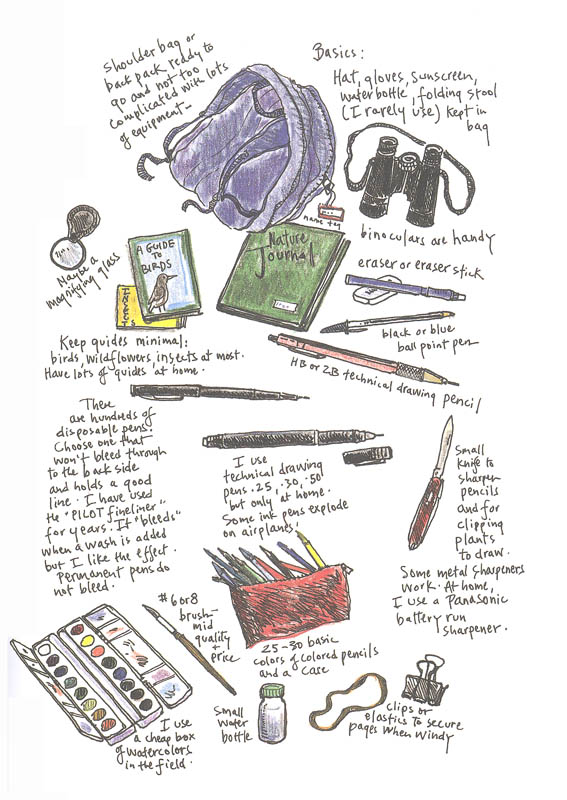 Shoulder bag or
back pack ready to
go and not too
complicated with lots
of equipment-
Basics:
Hat, gloves, sunscreen,
water bottle, folding stool
(I rarely use) kept in
bag
name tag
binoculars are handy
Maybe a
magnifying glass
A GUIDE
TO
BIRDS
INSECTS
Nature
Journal
eraser or eraser stick
black or blue
ball point pen
HB or 2B technical drawing pencil
Keep guides minimal:
birds, wildflowers, insects at most.
Have lots of guides at home.
There
are hundreds of
disposable pens.
Choose one that
won't bleed through
to the back side
and holds a good
line. I have used
the "PILOT fineliner"
for years. It "bleeds"
when a wash is added
but I like the effect.
Permanent pens do
not bleed.
I use
technical drawing
pens .25, .30, .50
but only at home.
Some ink pens explode
on airplanes.
Small
knife to
sharpen
pencils
and for
clipping
plants
to draw.
Some metal sharpeners
work. At home,
I use a Panasonic
battery run
sharpener.
#6 or 8
brush-
mid
quality
+
price
25-30 basic
colors of colored pencils
and a case
I use
a cheap box
of watercolors
in the field.
Small
water
bottle
clips or
elastics to secure
pages when windy